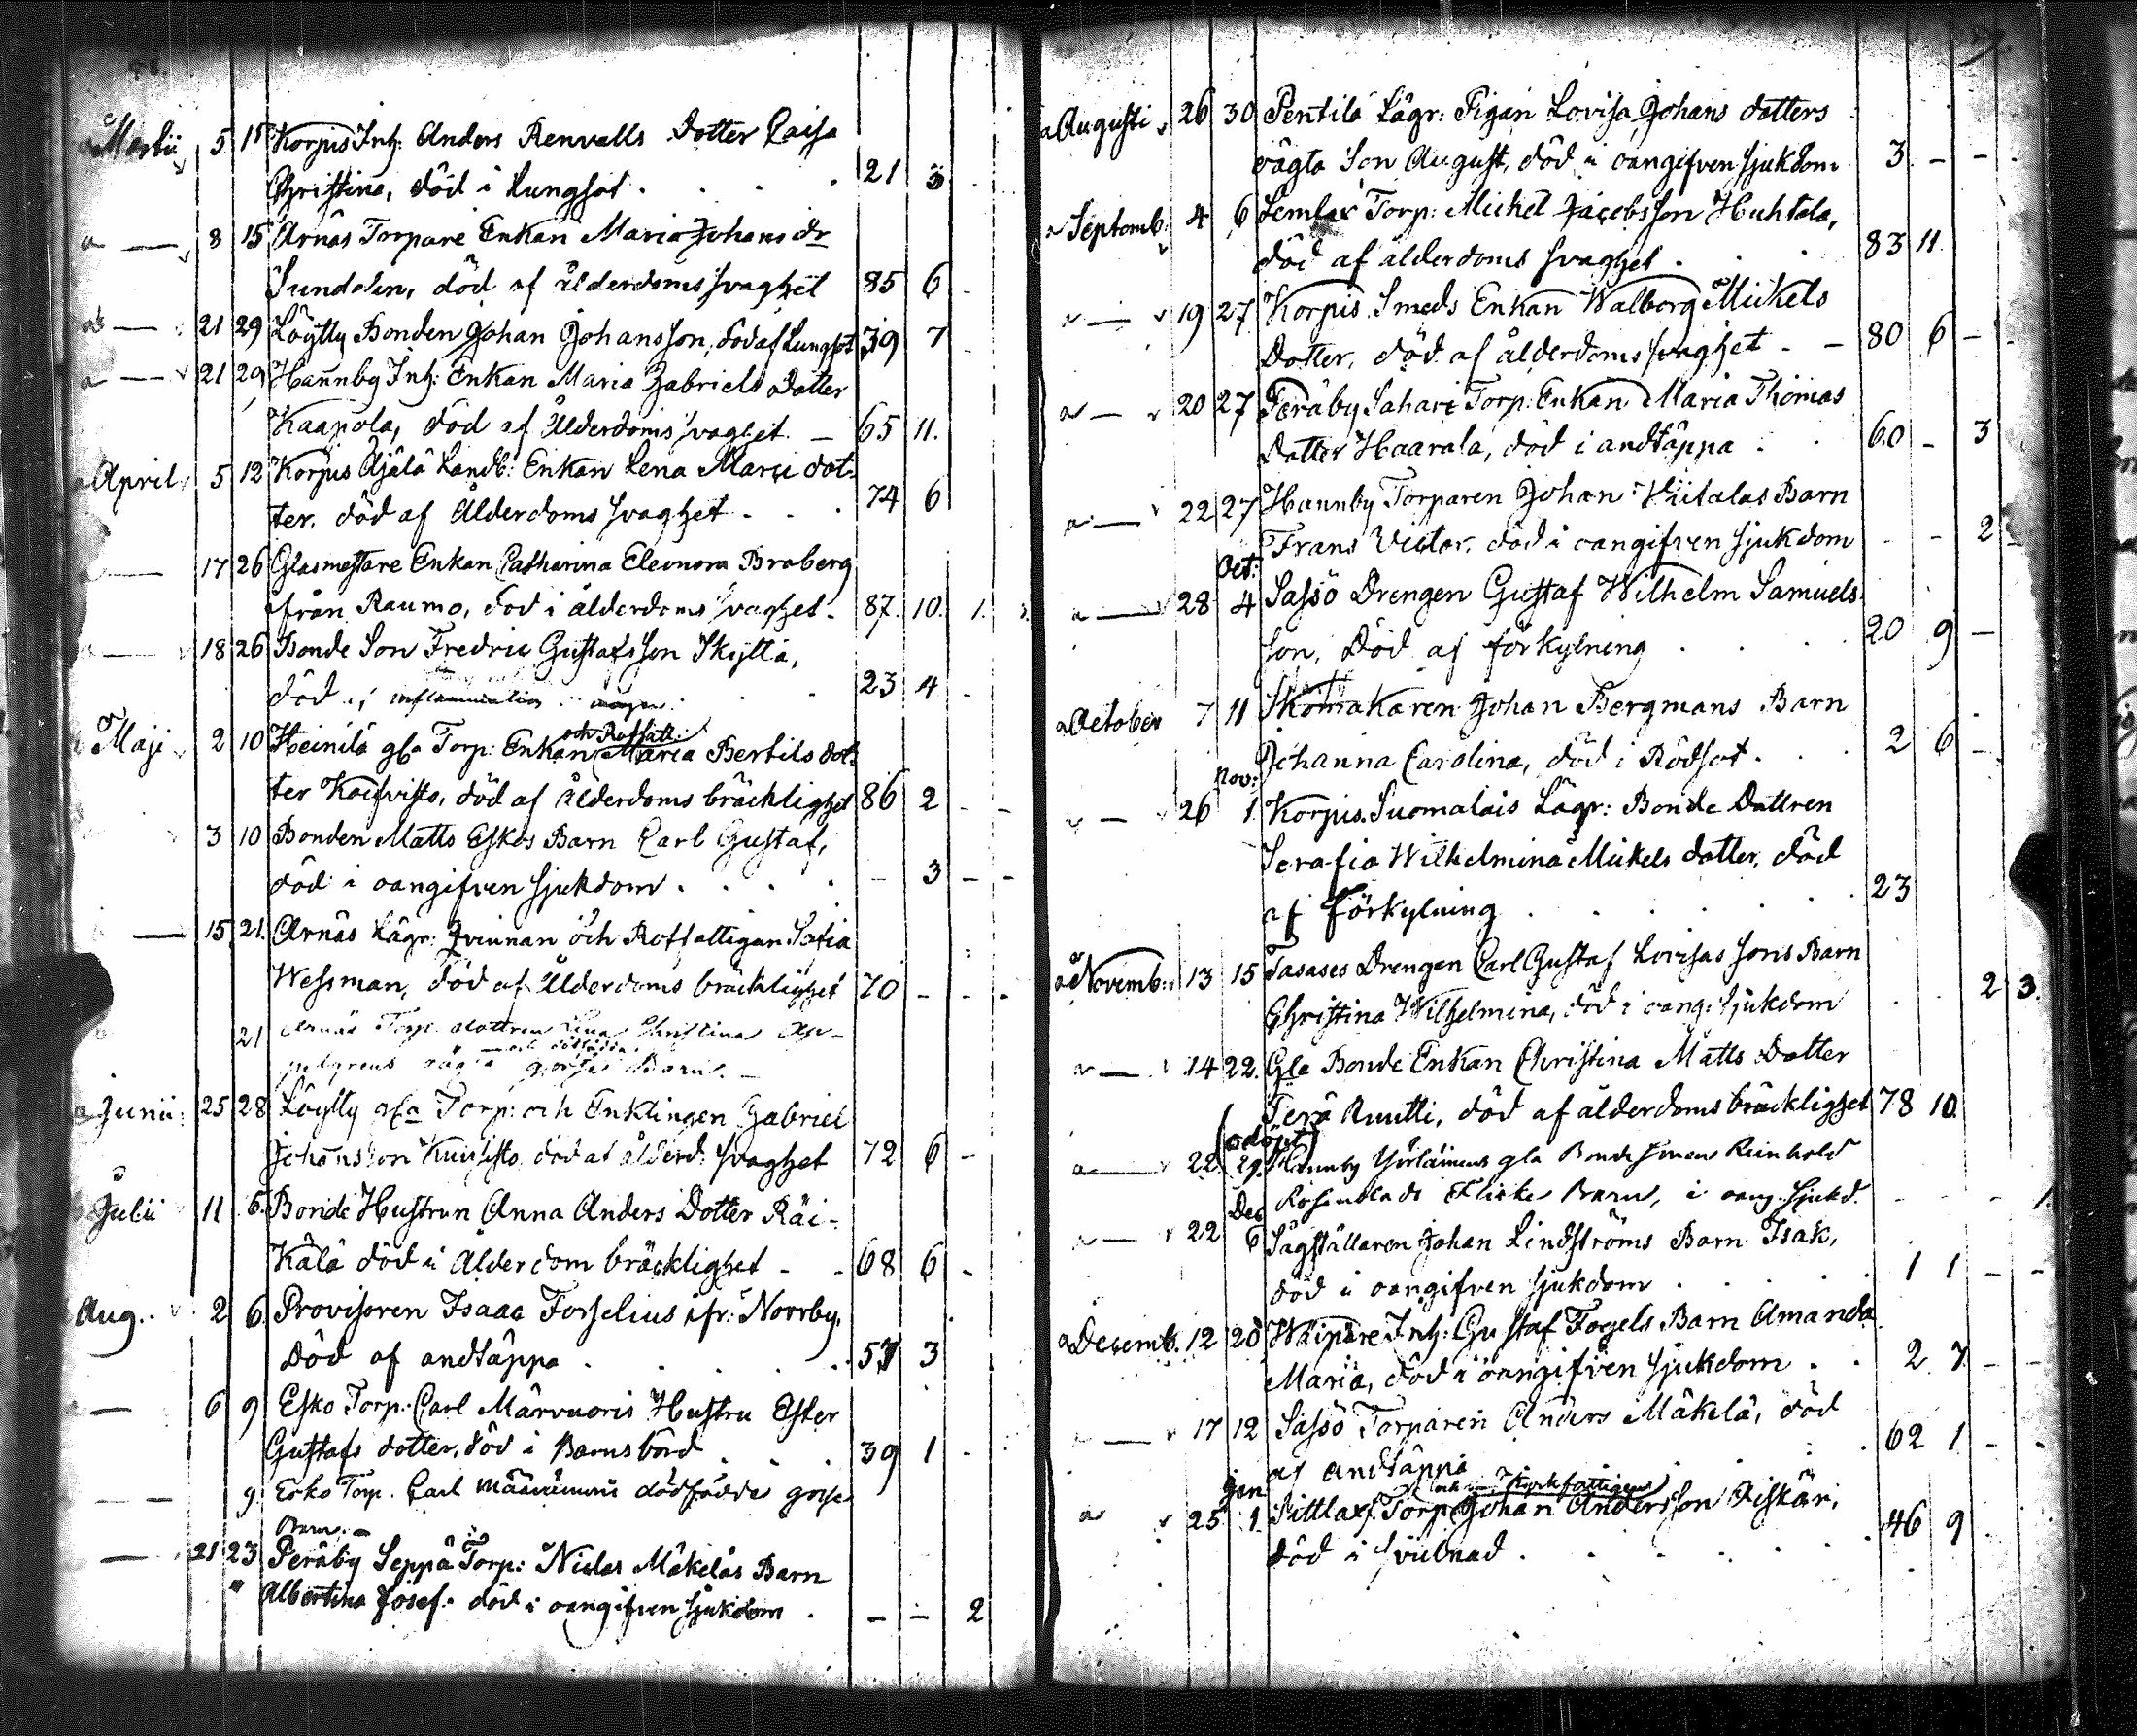 Martii 5 15 Korpis Inh: Anders Renvalls Dotter Caisa
Christina, död i Lungsot . . . 21 3
a — 8 15 Arnäs Torpare Enkan Maria Johans dr
Sundelin, död af ålderdoms svaghet 85 6 -
a — 21 29 Löytty Bonden Johan Johansson, död af Lungsot 39 7 -
a — 21 29 Hannby Inh: Enkan Maria Gabriels Dotter
Kaapola, död af Ålderdoms svaghet — 65 11.
April 5 12 Korpis Äjälä Landb: Enkan Lena Marci dot-
ter, död af Ålderdoms svaghet . . . 74 6
— 17 26 Glasmästare Enkan Catharina Eleonora Broberg
från Raumo, död i ålderdoms svaghet. 87. 10. 1.
— 18 26 Bonde Son Fredric Gustafsson Skyttä,
död i inflammation i magen . 23 4 -
Maji 2 10 Heinilä gla Torp: Enkan och Rotfatt: Maria Bertils dot-
ter Koifvisto, död af Ålderdoms bräcklighet 86 2 - -
3 10 Bonden Matts Eskos Barn Carl Gustaf,
död i oangifven sjukdom . . . . - 3 - -
— 15 21. Arnäs Lägr: Qvinnan och Rotfattigan Sofia
Wessman, död af Ålderdoms bräcklighet 70 - - -
21 Arnäs Torp. dottren Lena Christina
oägta dödfödda gosse Barn. —
a Junii 25 28 Löytty gla Torp: och Enklingen Gabriel
Johansson Kuusisto, död af ålderd: svaghet 72 6 -
Julii 11 6. Bonde Hustrun Anna Anders Dotter Räi-
kälä död i Ålderdom bräcklighet - - 68 6 -
Aug. 2 6 Provisoren Isaac Forselius ifr: Norrby,
död af andtäppa . . . . . 57 3
— 6 9 Esko Torp: Carl Märvuoris Hustru Ester
Gustafs dotter, död i Barnsbörd . . . 39 1 -
— 9. Esko Torp. Carl dödfödde gosse
Barn. —
— 21 23 Peräby Seppä Torp: Niclas Mäkeläs Barn
" Albertina Josef. död i oangifven sjukdom . - - 2
a Augusti 26 30 Pentilä Lägr: Pigan Lovisa Johans dotters
oägta Son August, död i oangifven sjukdom 3 - -
a Septemb: 4 6 Semlax Torp: Mickel Jacobsson Huhtala,
död af ålderdoms svaghet . . . 83 11.
a — 19 27 Korpis Smeds Enkan Walborg Mickels
Dotter, död af ålderdoms svaghet - - 80 6 -
a — 20 27 Peräby Sahari Torp: Enkan Maria Thomas
Dotter Haarala, död i andtäppa . . 60 - 3
a — 22 27 Hannby Torparen Johan Viitalas Barn
Frans Victor, död i oangifven sjukdom - - 2
Oct:
a — 28 4 Sassö Drengen Gustaf Wilhelm Samuels-
son, Död af förkylning . . . 20 9 —
a October 7 11 Skomakaren Johan Bergmans Barn
Johanna Carolina, död i Rödsot . . . 2 6 -
Nov:
— 26 1. Korpis Suomalais Lägr: Bonde Dottren
Serafia Wilhelmina Mickels dotter, död
af förkylning . . . . . . 23
a Novemb: 13 15 Tasases Drengen Carl Gustaf Lovisas sons Barn
Christina Wilhelmina, död i oang: sjukdom . . 2 3.
a — 14 22. Gla Bonde Enkan Christina Matts Dotter
Perä Ruutti, död af ålderdoms bräcklighet 78 10.
(odöpt)
a — 22. 29. Hannby Yörläinens gla Bonde Sonen Reinhold
Rosenblads Flicke Barn, i oang. sjukd. - - - 1.
Dec
a — 22 6 Sågställaren Johan Lindströms Barn Isak,
död i oangifven sjukdom . . . . 1 1 - -
a Decemb. 12 20 Waipäre Inh: Gustaf Fogels Barn Amanda
Maria, död i oangifven sjukdom . . 2 7 - -
— 17 12 Sassö Torparen Anders Mäkelä, död
af andtäppa . . . 62 1 - -
Jan: och Kyrkfattigen
a 25 1. Sittlax Torp: Johan Andersson Piskäri,
död i svulnad . . . . . . 46 9